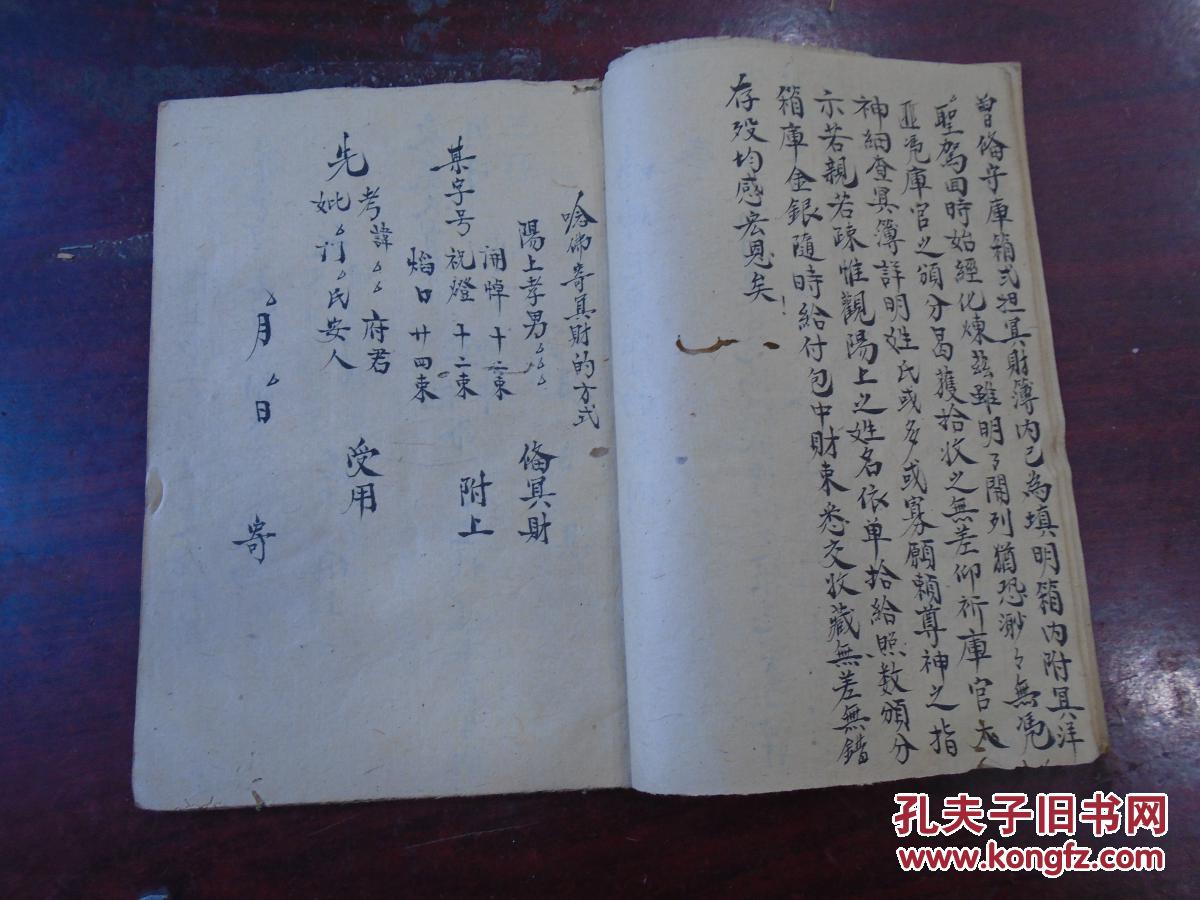 曾俻守庫箱式担冥財簿內已為填明箱內附冥洋
聖駕回時始經化煉茲雖明々開列猶恐渺々無凴
匪凴庫官之頒分曷獲拾收之無差仰祈庫官大
神細查冥簿詳明姓氏或多或寡願賴尊神之指
示若親若疎惟觀陽上之姓名依单拾給照数頒分
箱庫金銀隨時給付包中財束悉交收藏無差無錯
存歿均感宏恩矣
唸佛寄冥財的方式
陽上孝男 俻冥財
開悼十二束
某字号祝燈十二束 附上
熖口廿四束
先考諱府君
妣门氏安人 受用
月日 寄
孔夫子旧书网
www.kongfz.com